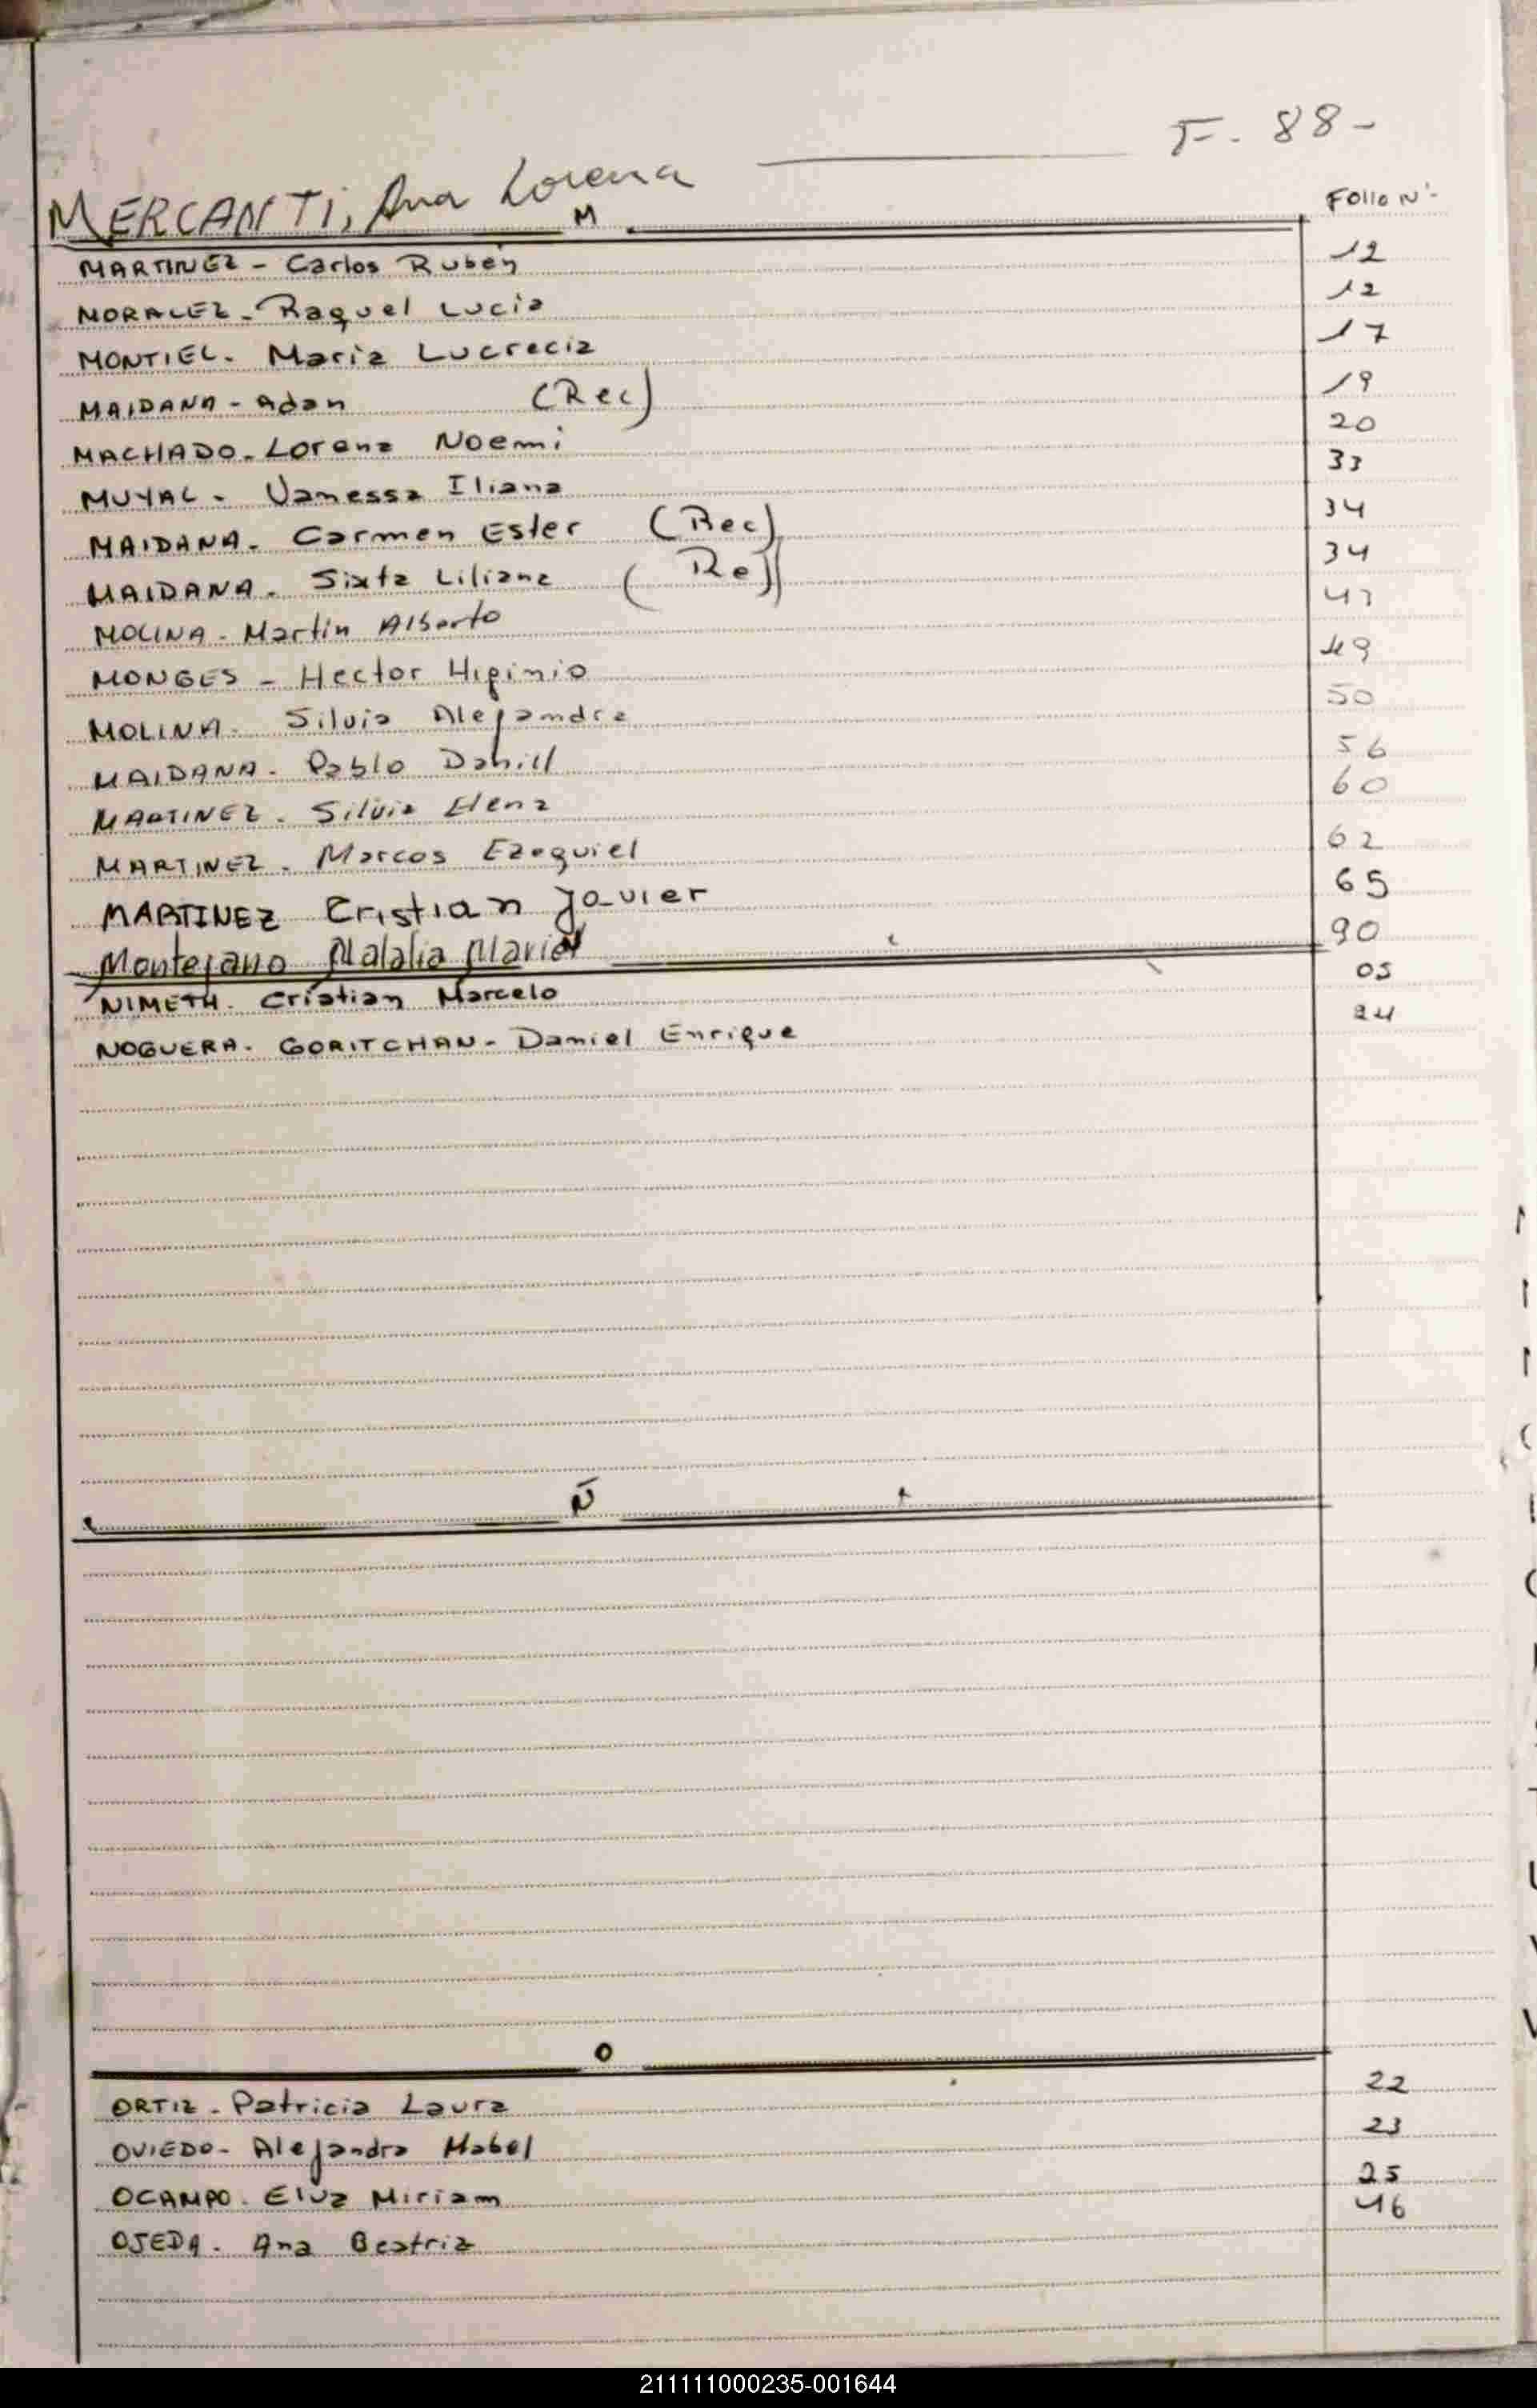 F. 88-
MERCANTI, Ana Lorena
Folio Nº
M
MARTINEZ - Carlos Ruben 12
MORALEZ - Raquel Lucia 12
MONTIEL. Maria Lucrecia 17
MAIDANA - Adan (Rec) 19
MACHADO - Lorena Noemi 20
MUYAL - Vanessa Iliana 33
MAIDANA. Carmen Ester (Rec) 34
MAIDANA. Sixta Liliana (Re) 34
MOLINA - Martin Alberto 43
MONGES - Hector Higinio 49
MOLINA. Silvia Alejandra 50
MAIDANA. Pablo 56
MARTINEZ. Silvia Elena 60
MARTINEZ. Marcos Ezequiel 62
MARTINEZ Cristian Javier 65
Montejano Natalia Maria 90
NIMETH. Cristian Marcelo 05
NOGUERA. GORITCHAN - Daniel Enrique 24
Ñ
O
ORTIZ - Patricia Laura 22
OVIEDO - Alejandra Mabel 23
OCAMPO. Elva Miriam 25
OJEDA. Ana Beatriz 46
211111000235-001644